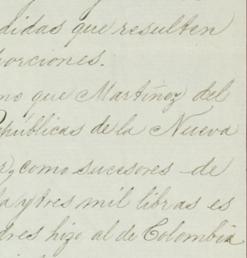 didas que resulten
porciones.
mo que Martinez del
Repúblicas de la Nueva
como sucesores de
ta y tres mil libras es
dres hizo al de Colombia